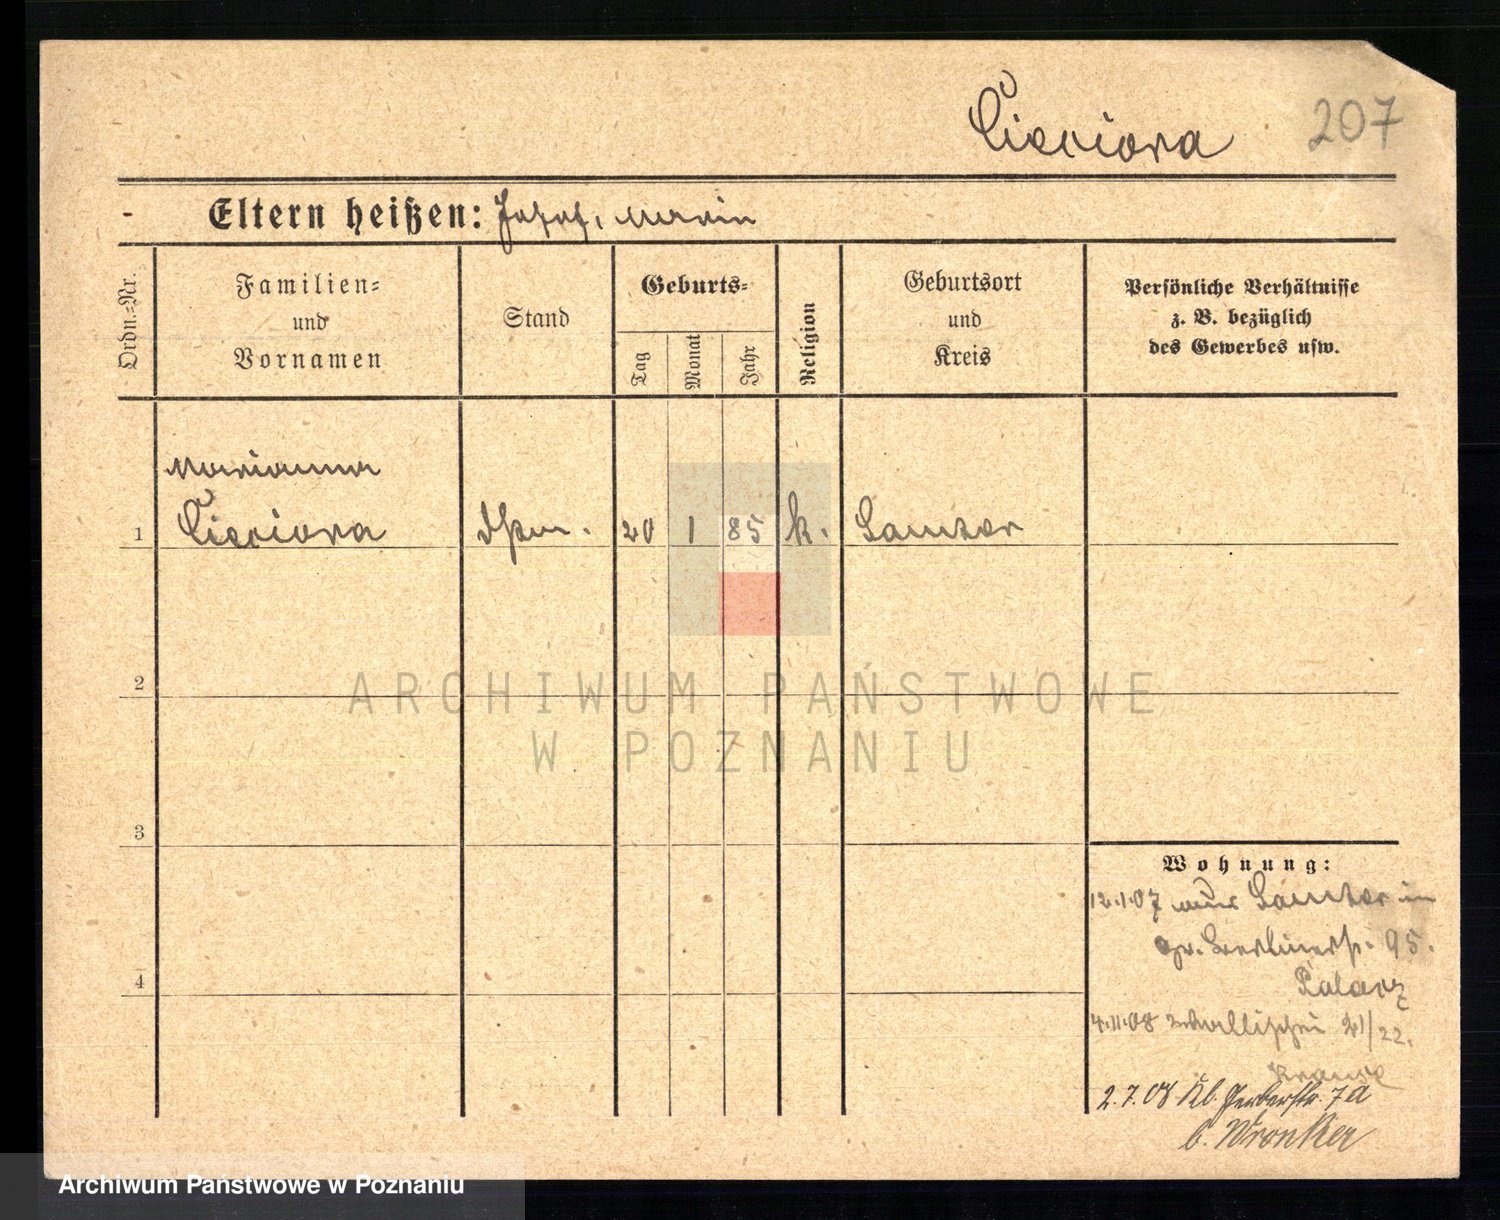 Cieciora 207
Eltern heißen: Josef, Marie
Ordn.-Nr.
Familien-
und
Vornamen
Stand
Geburts-
Tag
Monat
Jahr
Religion
Geburtsort
und
Kreis
Persönliche Verhältnisse
z. B. bezüglich
des Gewerbes usw.
Marianna
1 Cieciora 20 1 85 k. Samter
2
3
4
Wohnung:
12.1.07 aus Samter in
gr. Berlinerstr. 95.
Palacz
4.11.08 Wallischei 21/22.
Krause
2.7.08 Kl. Gerberstr. 7a
b. Wronker
ARCHIWUM PAŃSTWOWE
W POZNANIU
Archiwum Państwowe w Poznaniu